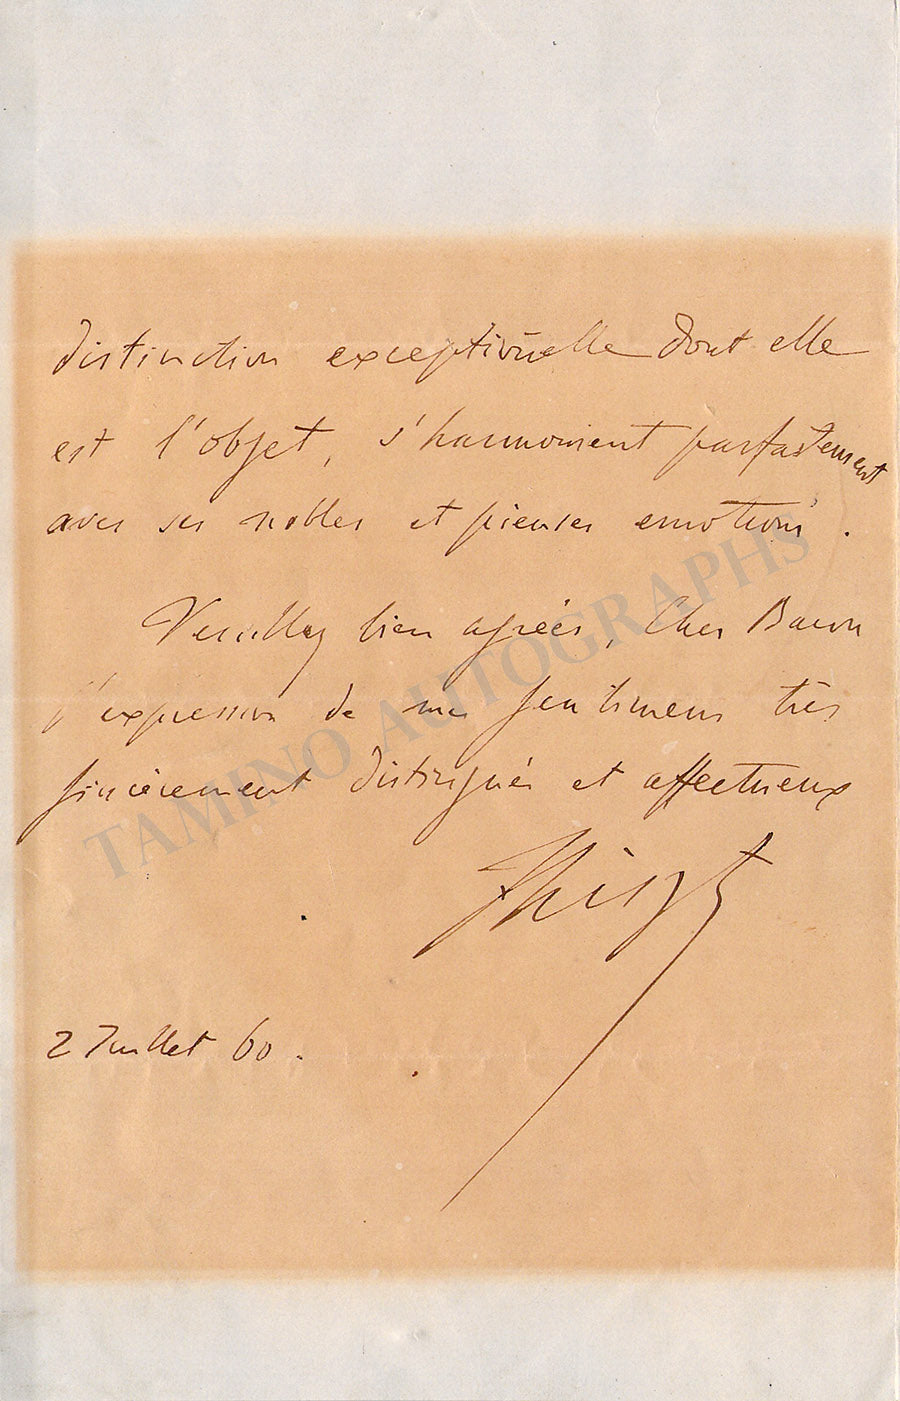 distinction exceptionelle dont elle
est l'objet, s'harmonient parfaitement
avec ses nobles et pieuses emotions.
Veuillez bien agréer, Cher Baron
l'expression de mes sentimens très
sincèrement distingués et affectueux
FLiszt
2 Juillet 60.
TAMINO AUTOGRAPHS